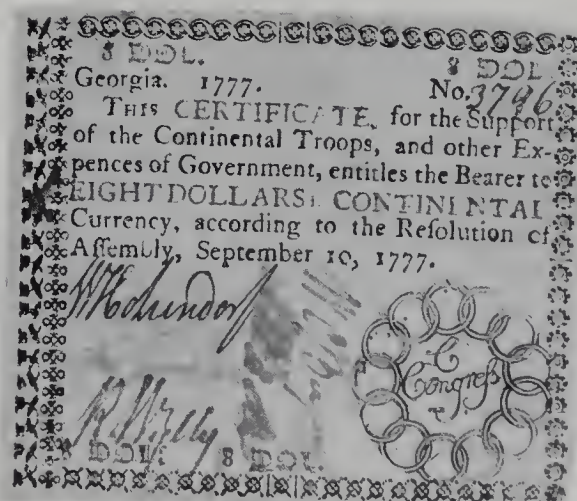 8 DOL. 8 DOL.
Georgia. 1777. No. 3796
THIS CERTIFICATE, for the Support
of the Continental Troops, and other Ex-
pences of Government, entitles the Bearer to
EIGHT DOLLARS: CONTINENTAL
Currency, according to the Resolution of
Assembly, September 10, 1777.
C
Congress
8 DOL. 8 DOL.